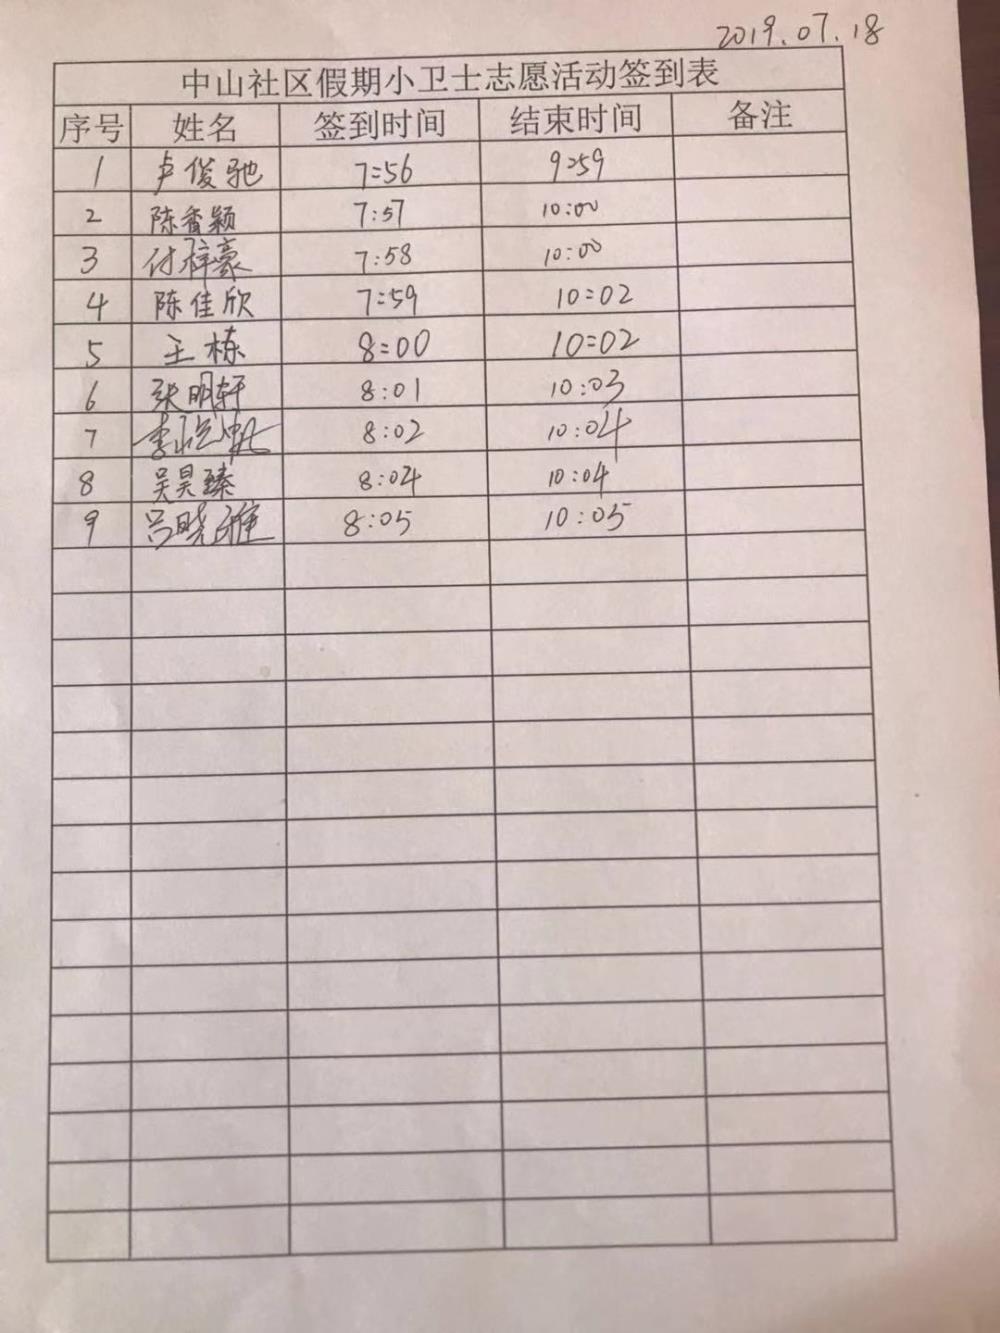 2019.07.18
中山社区假期小卫士志愿活动签到表
序号 姓名 签到时间 结束时间 备注
1 卢俊驰 7:56 9:59
2 陈香颖 7:57 10:00
3 付梓豪 7:58 10:00
4 陈佳欣 7:59 10:02
5 王栋 8:00 10:02
6 张明轩 8:01 10:03
7 李 8:02 10:04
8 吴昊臻 8:04 10:04
9 吕晓雅 8:05 10:05